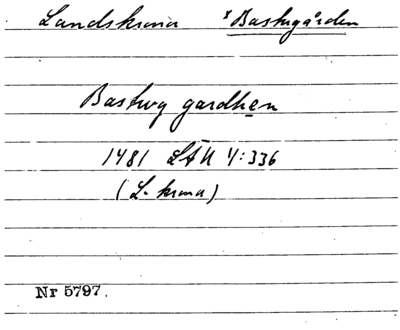 Landskrona × Bastugården
Bastwg gardhen
1481 LÄU 4:336
(L-krona)
Nr 5797.